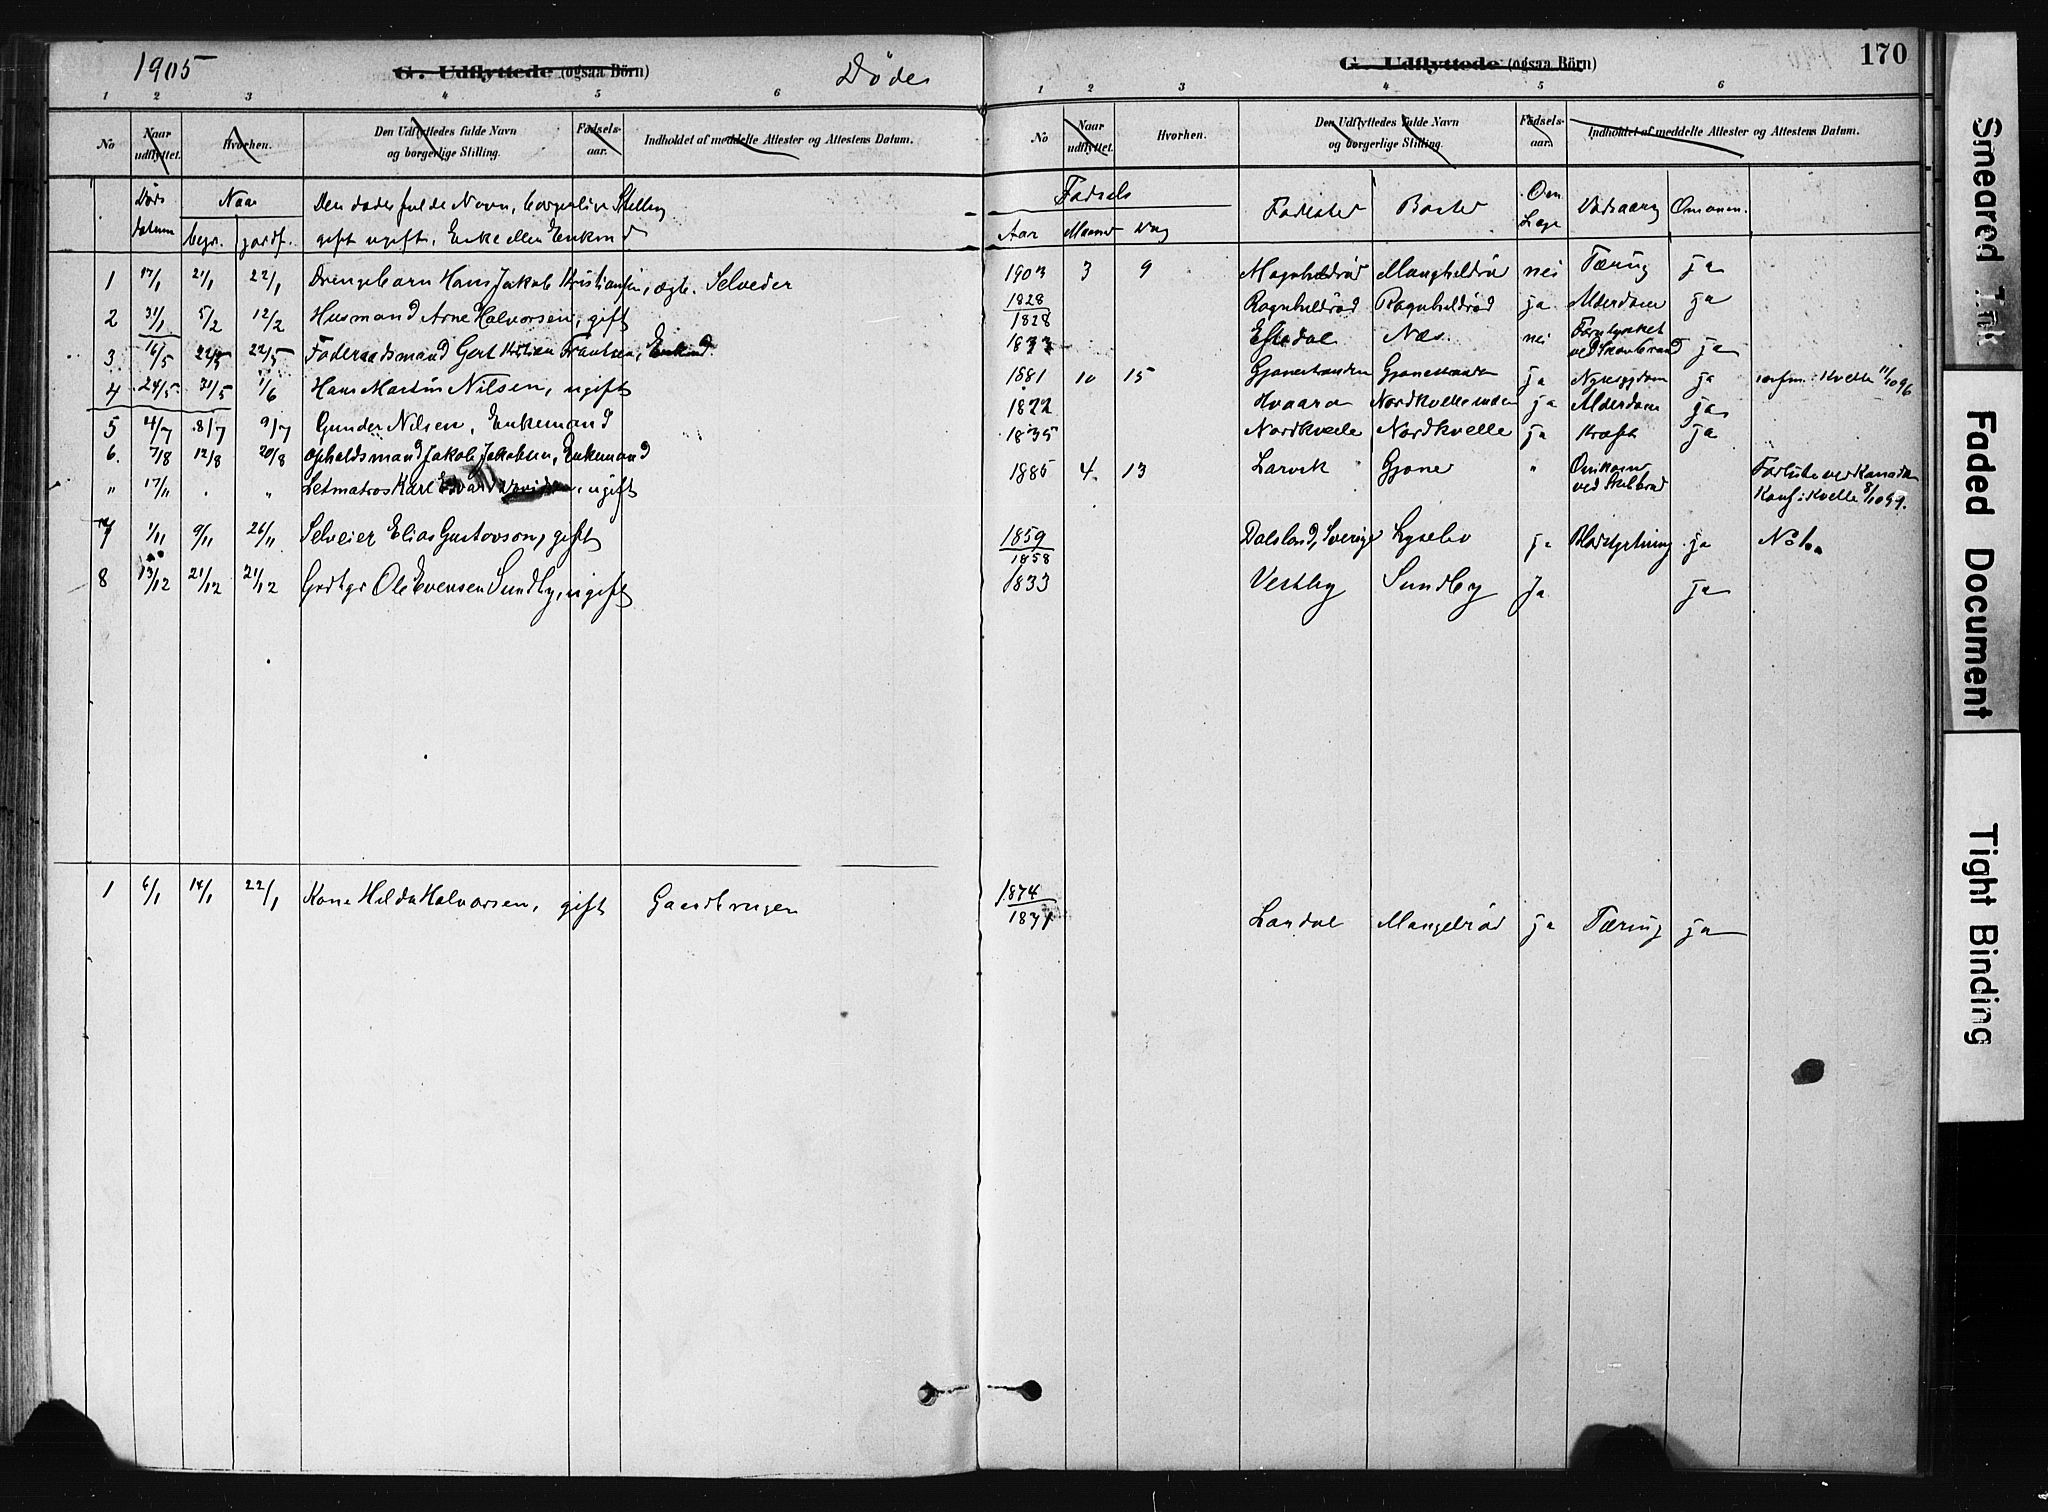 1905
G. Udflyttede (ogsaa Börn)
Döde
1 2 3 4 5 6
No
Naar udflyttet.
Hvorhen.
Den Udflyttedes fulde Navn og borgerlige Stilling.
Fødsels-aar.
Indholdet af meddelte Attester og Attestens Datum.
Døds datum
Naar
begr. jordf.
Den dødes fulde Navn, borgerlive Stilling
gift ugift, Enke eller Enkemd
1 17/1 21/1 22/1 Drengebarn Hans Jakob Kristiansen, ægte. Selveder
2 31/1 5/2 12/2 Husmand Arne Halvorsen, gift
3 16/5 22/5 22/5 Føderaadsmand Gert Kristian Frantsen, Enkmd.
4 24/5 31/5 1/6 Hans Martin Nilsen, ugift
5 4/7 8/7 9/7 Gunder Nilsen, Enkemand
6. 7/8 12/8 20/8 Opholdsmand Jakob Jakobsen, Enkemand
" 17/11 " " Letmatros Karl Edvard, ugift
7 1/11 9/11 26/11 Selveier Elias Gustavson, gift
8 13/12 21/12 21/12 Grdbgr Ole Evensen Sundby, ugift
1 6/1 14/1 22/1 Kone Hilda Halvorsen, gift Gaardbruger
170
G. Udflyttede (ogsaa Börn)
1 2 3 4 5 6
No
Naar udflyttet.
Hvorhen.
Den Udflyttedes fulde Navn og borgerlige Stilling.
Fødsels-aar.
Indholdet af meddelte Attester og Attestens Datum.
Fødsels
Aar Maaned Dag
Fødested Bosted Om Læge Dødsaarsag Om anm.
1903 3 9 Magnheldrød Mangheldrø nei Tæring ja
1828
1828 Ragnhildrød Ragnhildrød ja Alderdom ja
1833 Eftedal Næs nei ja
1881 10 15 Gjonestranden Gjonestranden ja ja konfm. i Kvelle 11/10 96
1822 Hvaara Nordkvelle ja Alderdom ja
1835 Nordkvelle Nordkvelle ja Kræft ja
1885 4 13 Larvik Gjone " Omkom ved Skibbrud
Konf i Kvelle 8/10 99.
1859
1858 Dalsland, Sverige Lysebo ja Blodstyrtning ja
1833 Vestby Sundby Ja ja
1874
1831 Landal Mangelrød ja Tæring ja
Smeared Ink
Faded Document
Tight Binding